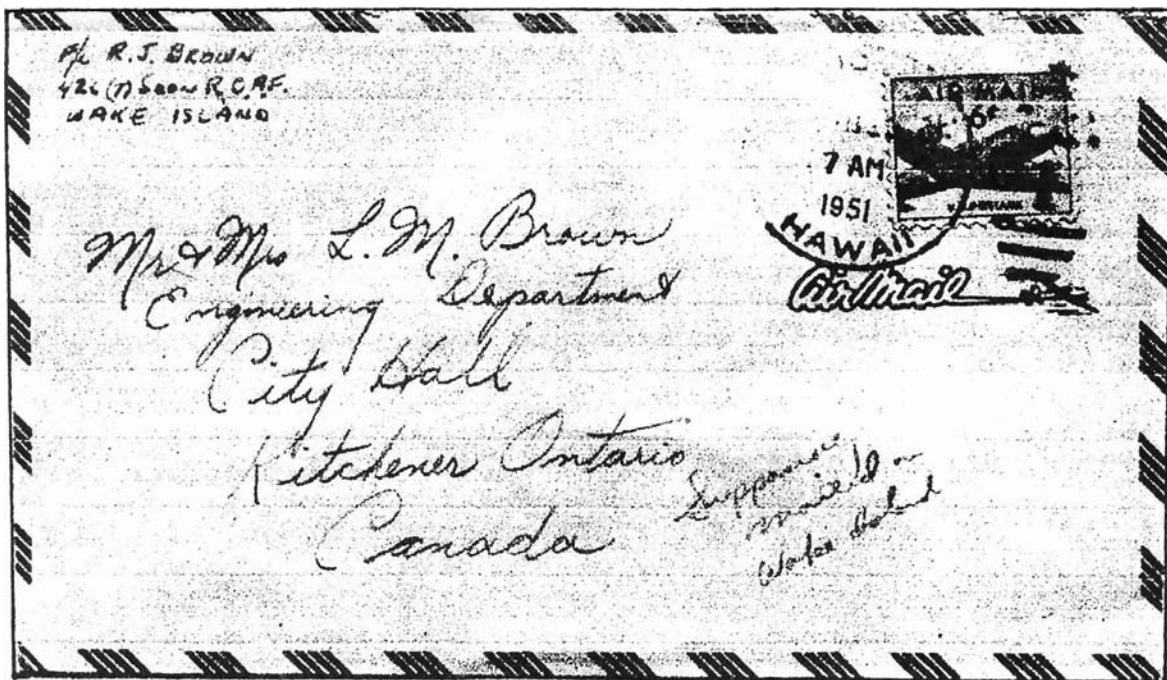 F/L R.J. BROWN
426 (T) SQDN R.C.A.F.
WAKE ISLAND
AIR MAIL
6¢
7 AM
1951
HAWAII
Air Mail
Mr & Mrs L. M. Brown
Engineering Department
City Hall
Kitchener Ontario
Canada
mailed on
Wake Island